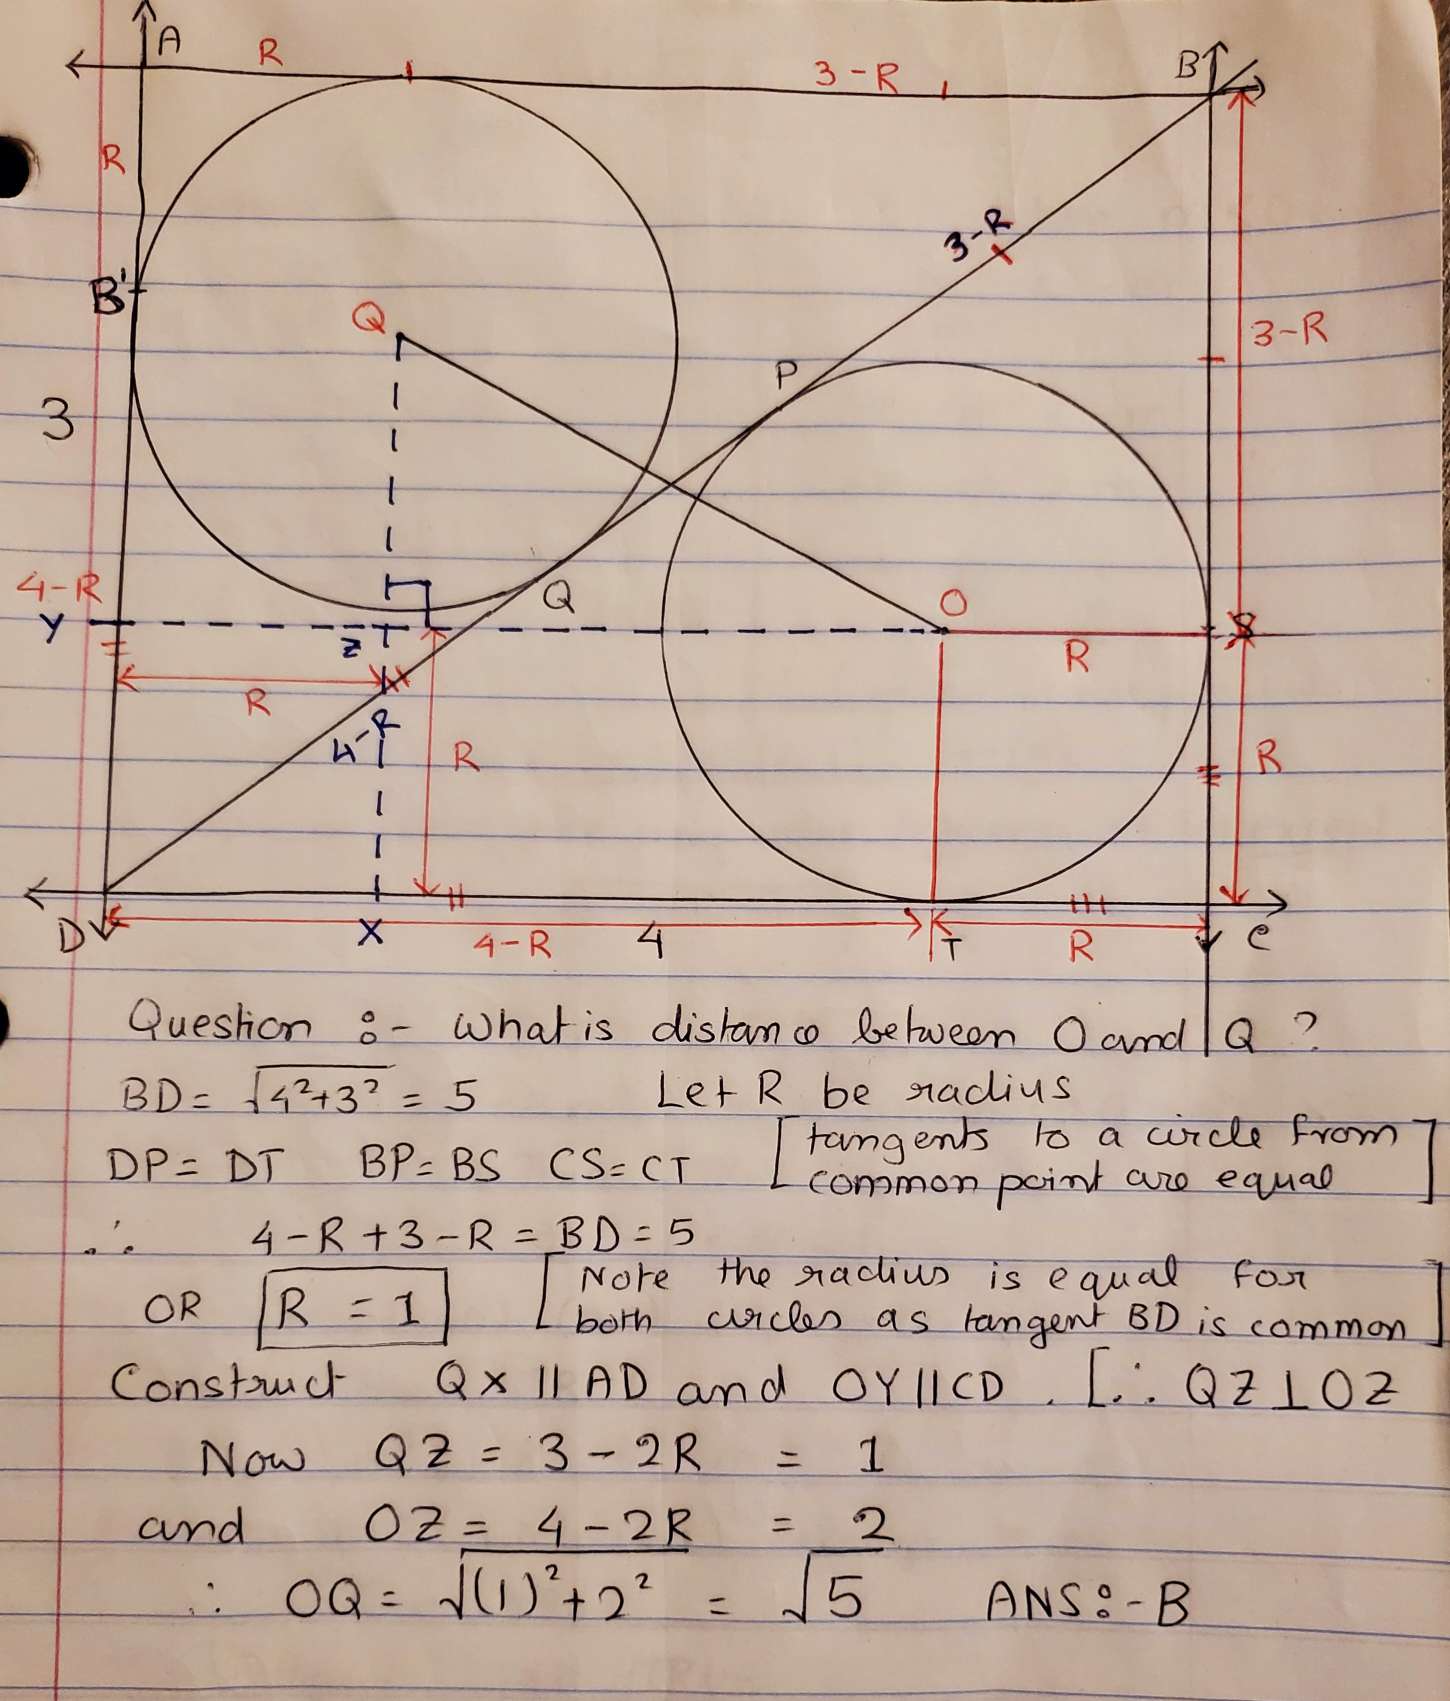 A
R
3-R
B
R
3-R
B'
Q
3-R
P
3
Q
4-R
Y
Z
O
R
S
R
4-R
R
R
D
X
4-R
4
T
R
C
Question :- What is distance between O and Q ?
BD = √4²+3² = 5 Let R be radius
DP = DT BP = BS CS = CT [tangents to a circle from
common point are equal]
∴ 4-R+3-R = BD = 5
OR R = 1 [Note the radius is equal for
both circles as tangent BD is common]
Construct QX || AD and OY || CD . [∴ QZ ⊥ OZ
Now QZ = 3-2R = 1
and OZ = 4-2R = 2
∴ OQ = √(1)²+2² = √5 ANS:-B